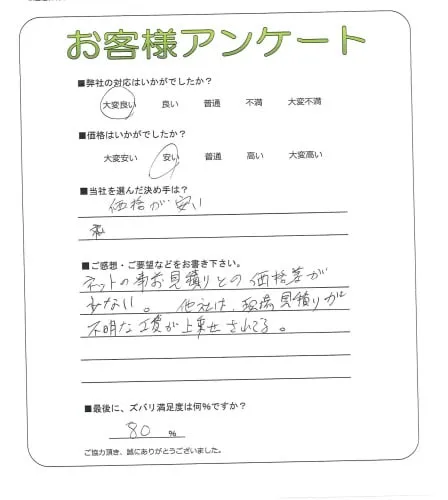 お客様アンケート
■弊社の対応はいかがでしたか?
大変良い 良い 普通 不満 大変不満
■価格はいかがでしたか?
大変安い 安い 普通 高い 大変高い
■当社を選んだ決め手は?
価格が安い
■ご感想・ご要望などをお書き下さい。
ネットの事前見積りとの価格差が
少ない。 他社は、現場見積りが
不明な工賃が上乗せされてる。
■最後に、ズバリ満足度は何%ですか?
80 %
ご協力頂き、誠にありがとうございました。